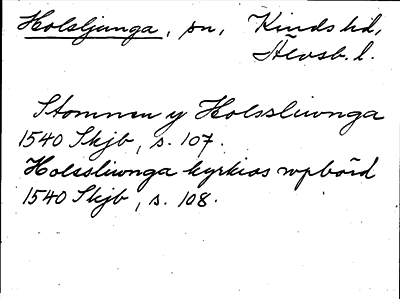 Holsljunga, sn, Kinds hd,
Älvsb. l.
Stommen y Holssliwnga
1540 Skjb, s. 107.
Holssliwnga kyrkios wpbörd
1540 Skjb, s. 108.